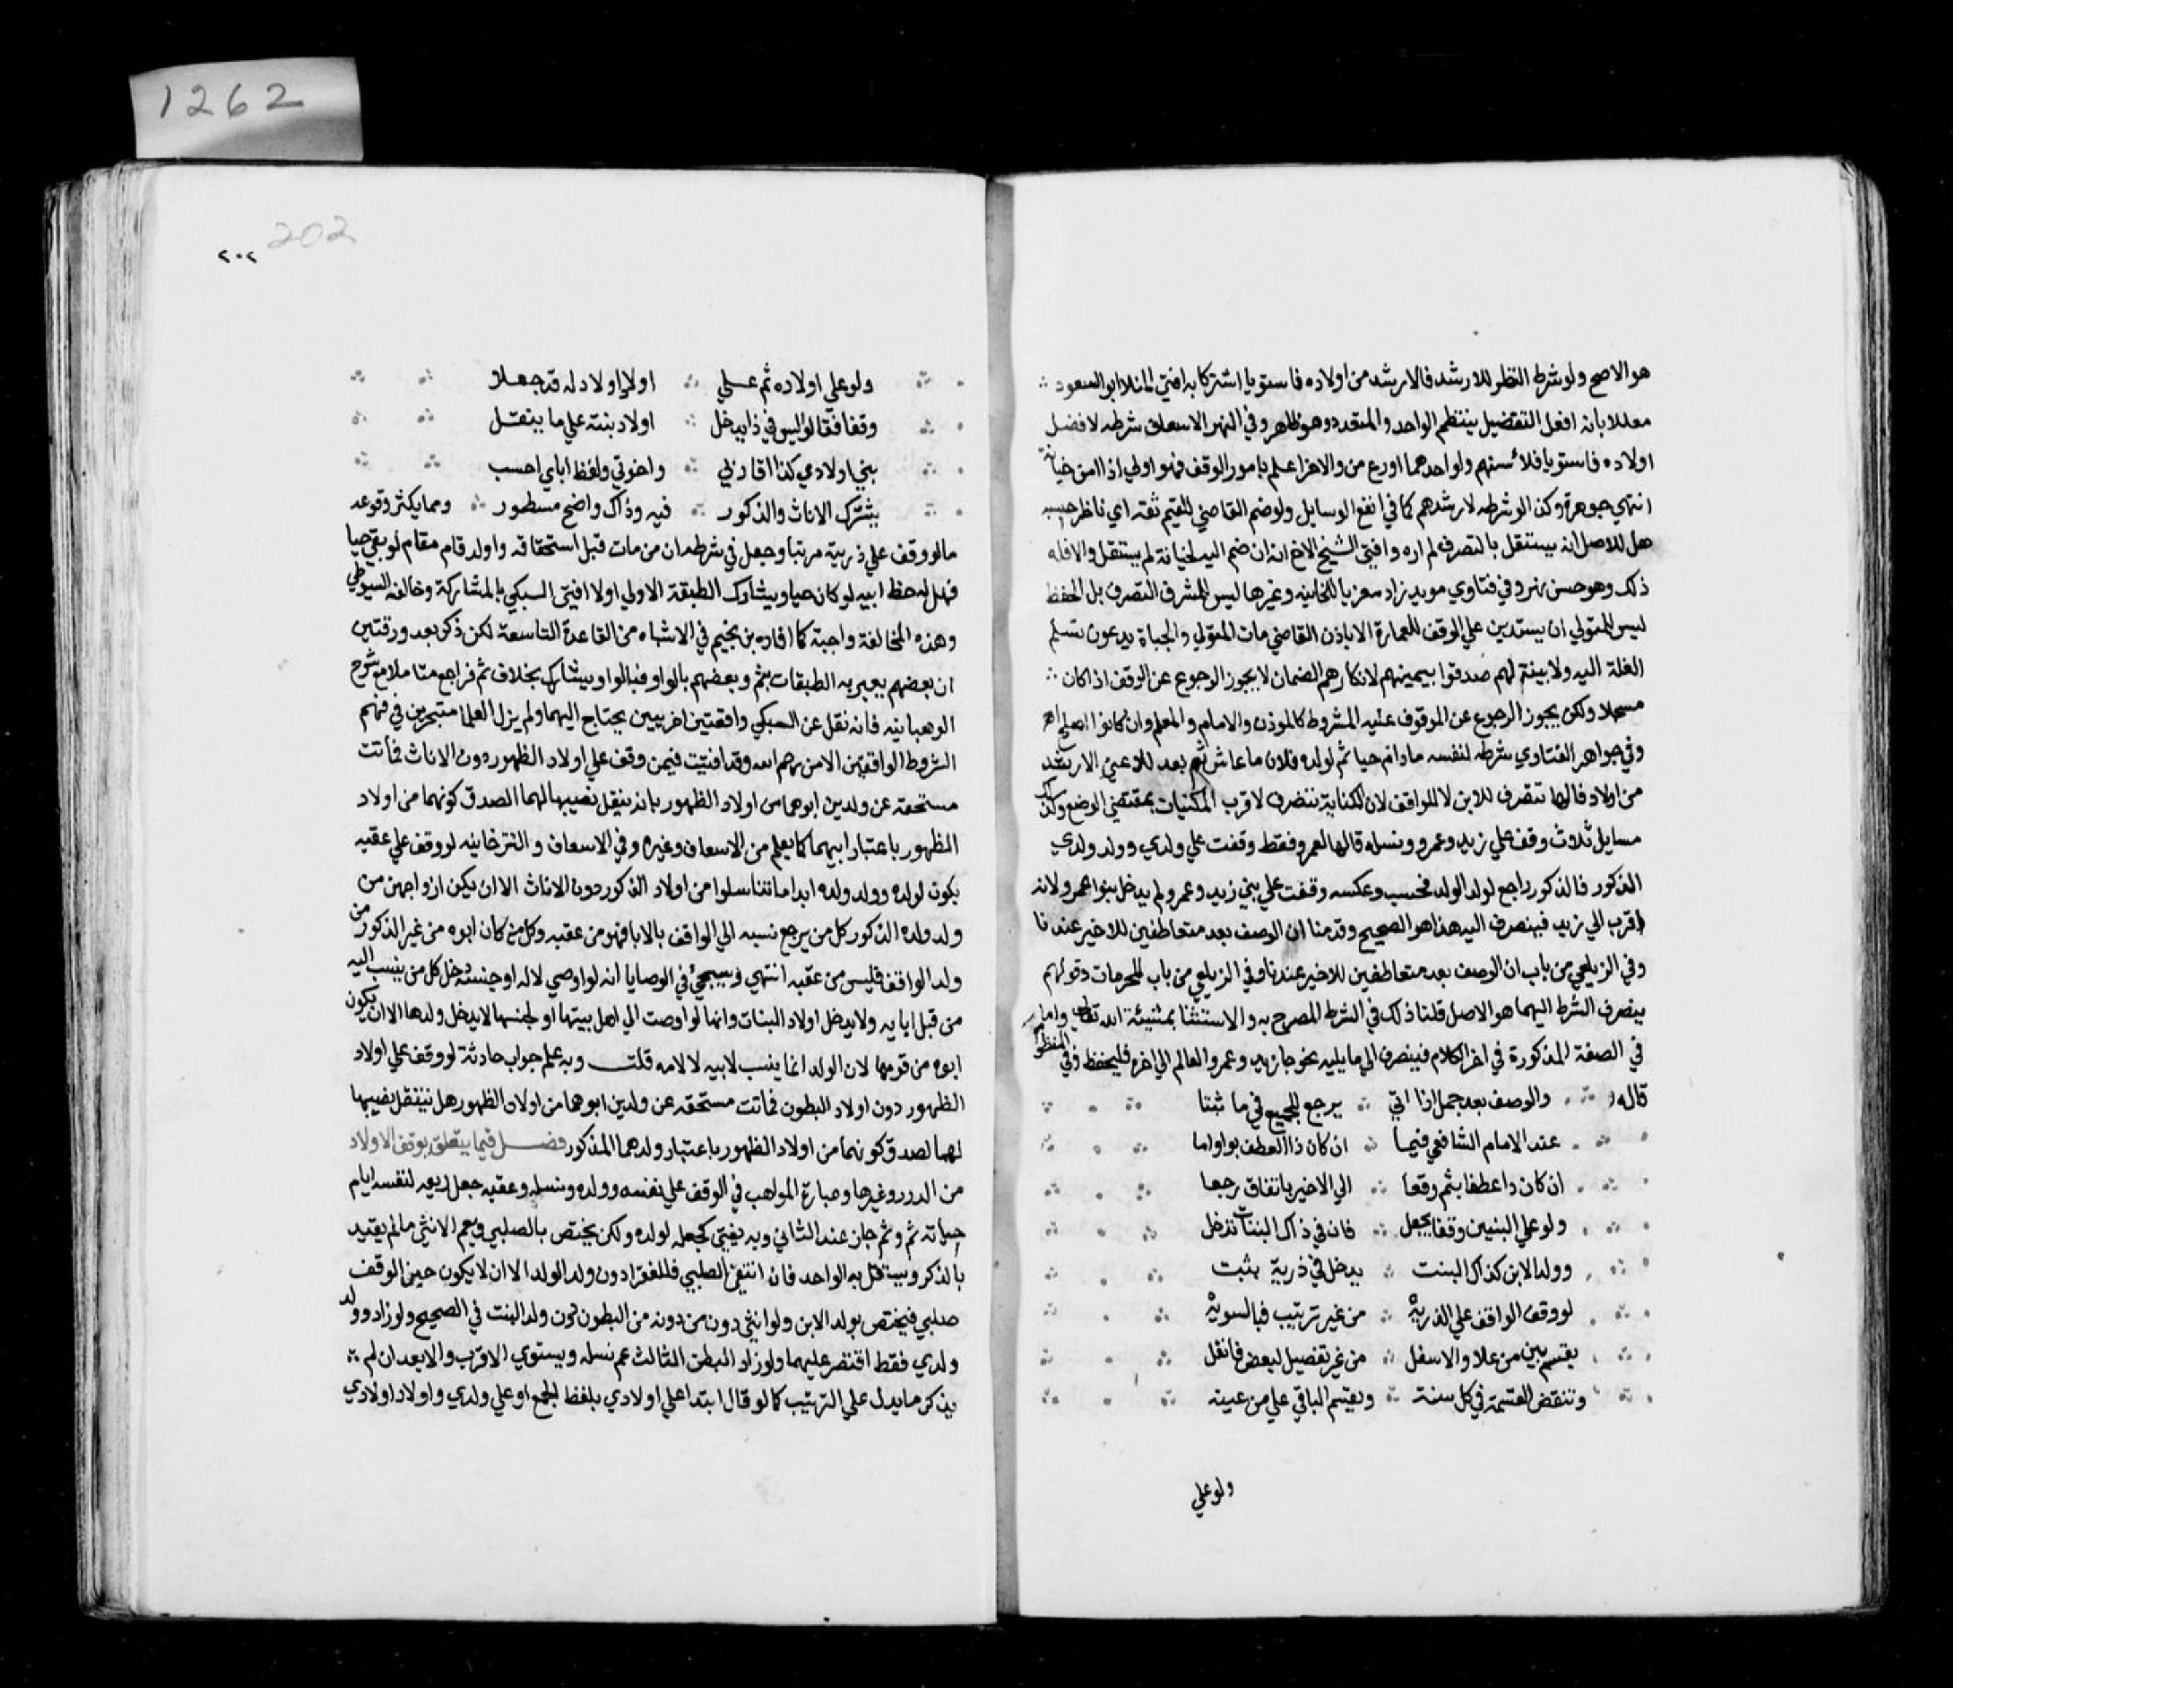 هو الاصح ولو شرط النظر للارشد فالارشد من اولاده فاستويا اشتركا به افتى المنلا ابو السعود
معللا بان افعل التفضيل ينتظم الواحد والمتعدد وهو ظاهر وفي النهر الاسعاف شرطه لافضل
اولاده فاستويا فلاسنهم ولو احدهما اورع من والاخر اعلم بامور الوقف فهو اولي اذا امن خيانته
انتهي جوهرة وكذا لو شرطه لارشدهم كما في انفع الوسايل ولو ضم القاضي للقيم ثقه اي ناظر حسبه
هل للاصل انه يستقل بالتصرف لم اره وافتى الشيخ الاخ انه ان ضم اليه لخيانة لم يستقل والا فله
ذلك وهو حسن نهر وفي فتاوي مويد زاده معزيا للخانيه وغيرها ليس للمشرف التصرف بل الحفظ
ليس للمتولي ان يستدين علي الوقف للعمارة الا باذن القاضي مات المتولي والجباة يدعون تسلم
الغلة اليه ولا بينة لهم صدقوا بيمينهم لانكارهم الضمان لا يجوز الرجوع عن الوقف اذا كان
مسجلا ولكن يجوز الرجوع عن الموقوف عليه المشروط كالموذن والامام والمعلم وان كانوا اصلح اهـ
وفي جواهر الفتاوي شرطه لنفسه ما دام حيا ثم لولده فلان ما عاش ثم بعد للاعف الارشد
من اولاده فالها تنصرف للابن لا للواقف لان الكناية تنصرف لاقرب المكنيات بمقتضي الوضع وكذلك
مسايل ثلاث وقف علي زيد وعمرو ونسله فالها لعمرو فقط وقفت علي ولدي وولد ولدي
الذكور فالذكور راجع لولد الولد فحسب وعكسه وقفت علي بني زيد وعمرو لم يدخل بنوا عمرو لانه
اقرب الي زيد فينصرف اليه هذا هو الصحيح وقدمنا ان الوصف بعد متعاطفين للاخير عندنا
وفي الزيلعي من باب ان الوصف بعد متعاطفين للاخير عندنا وفي الزيلعي من باب المحرمات وقولهم
ينصرف الشرط اليهما هو الاصل قلنا ذلك في الشرط المصرح به والاستثنا بمشيئة الله تعالي واما
في الصفة المذكورة في اخر الكلام فينصرف الي ما يليه نحو جاء زيد وعمرو العالم الي اخره فليحفظ وفي المنظومة
قاله والوصف بعد جمل اذا اتي يرجع للجميع في ما ثبتا
عند الامام الشافعي فيما ان كان ذا العطف بواو اما
ان كان ذا عطفا بثم وقعا الي الاخير باتفاق رجعا
ولو علي البنين وقفا يجعل فان في ذاك البنات تدخل
وولد الابن كذاك البنت يدخل في ذرية بثبت
لو وقف الواقف علي الذريه من غير ترتيب فبالسويه
يقسم بين من علا والاسفل من غير تفضيل لبعض فانقل
وتنقض القسمة في كل سنة ويقسم الباقي علي من عينه
ولو علي
1262
202
٢٠٢
ولو علي اولاده ثم علي اولاد اولاد له قد جعلا
وقفا فقالوا ليس في ذا يدخل اولاد بنته علي ما ينقل
بني اولادي كذا اقاربي واخوتي ولفظ اباي احسب
يشترك الاناث والذكور فيه وذاك واضح مسطور ومما يكثر وقوعه
ما لو وقف علي ذريته مرتبا وجعل في شرطه ان من مات قبل استحقاقه وله ولد قام مقام لو بقي حيا
فهل له حظ ابيه لو كان حيا ويشارك الطبقة الاولي او لا افتى السبكي بالمشاركة وخالفه السيوطي
وهذه المخالفة واجبة كما افاده بن نجيم في الاشباه من القاعدة التاسعة لكن ذكر بعد ورقتين
ان بعضهم يعبر به الطبقات بثم وبعضهم بالواو فبالواو يشارك بخلاف ثم فراجع متاملا مع شرح
الوهبانيه فانه نقل عن السبكي واقعتين اخريين يحتاج اليهما ولم يزل العلما متحيرين في فهم
الشروط الواقفين الا من رحم الله وقد افتيت فيمن وقف علي اولاد الظهور دون الاناث فماتت
مستحقه عن ولدين ابوهما من اولاد الظهور بانه ينقل نصيبها لهما الصدق كونهما من اولاد
الظهور باعتبار ابيهما كما يعلم من الاسعاف وغيره وفي الاسعاف والتترخانيه لو وقف علي عقبه
يكون لولده وولد ولده ابدا ما تناسلوا من اولاد الذكور دون الاناث الا ان يكن ازواجهن من
ولد ولده الذكور كل من يرجع نسبه الي الواقف بالابا فهو من عقبه وكل من كان ابوه من غير الذكور من
ولد الواقف فليس من عقبه انتهي وسيجئ في الوصايا انه لو اوصي لاله او جنسه دخل كل من ينسب اليه
من قبل ابايه ولا يدخل اولاد البنات وانها لو اوصت الي اهل بيتها او لجنسها لا يدخل ولدها الا ان يكون
ابوه من قومها لان الولد انما ينسب لابيه لا لامه قلت وبه علم جواب حادثة لو وقف علي اولاد
الظهور دون اولاد البطون فماتت مستحقه عن ولدين ابوهما من اولاد الظهور هل ينتقل نصيبها
لهما لصدق كونهما من اولاد الظهور باعتبار ولدهما المذكور فصل فيما يتعلق بوقف الاولاد
من الدرر وغيرها وعبارة المواهب في الوقف علي نفسه وولده ونسله وعقبه جعل ريعه لنفسه ايام
حياته ثم وثم جاز عند الثاني وبه يفتى كجعله لولده ولكن يختص بالصلبي ويعم الانثى ما لم يقيد
بالذكر ويستقل به الواحد فان انتفى الصلبي فللفقرا دون ولد الولد الا ان لا يكون حين الوقف
صلبي فيختص بولد الابن ولو انثى دون من دونه من البطون دون ولد البنت في الصحيح ولو زاد وولد
ولدي فقط اقتصر عليهما ولو زاد البطن الثالث عم نسله ويستوي الاقرب والابعد ان لم
يذكر ما يدل علي الترتيب كما لو قال ابتدا علي اولادي بلفظ الجمع او علي ولدي واولاد اولادي